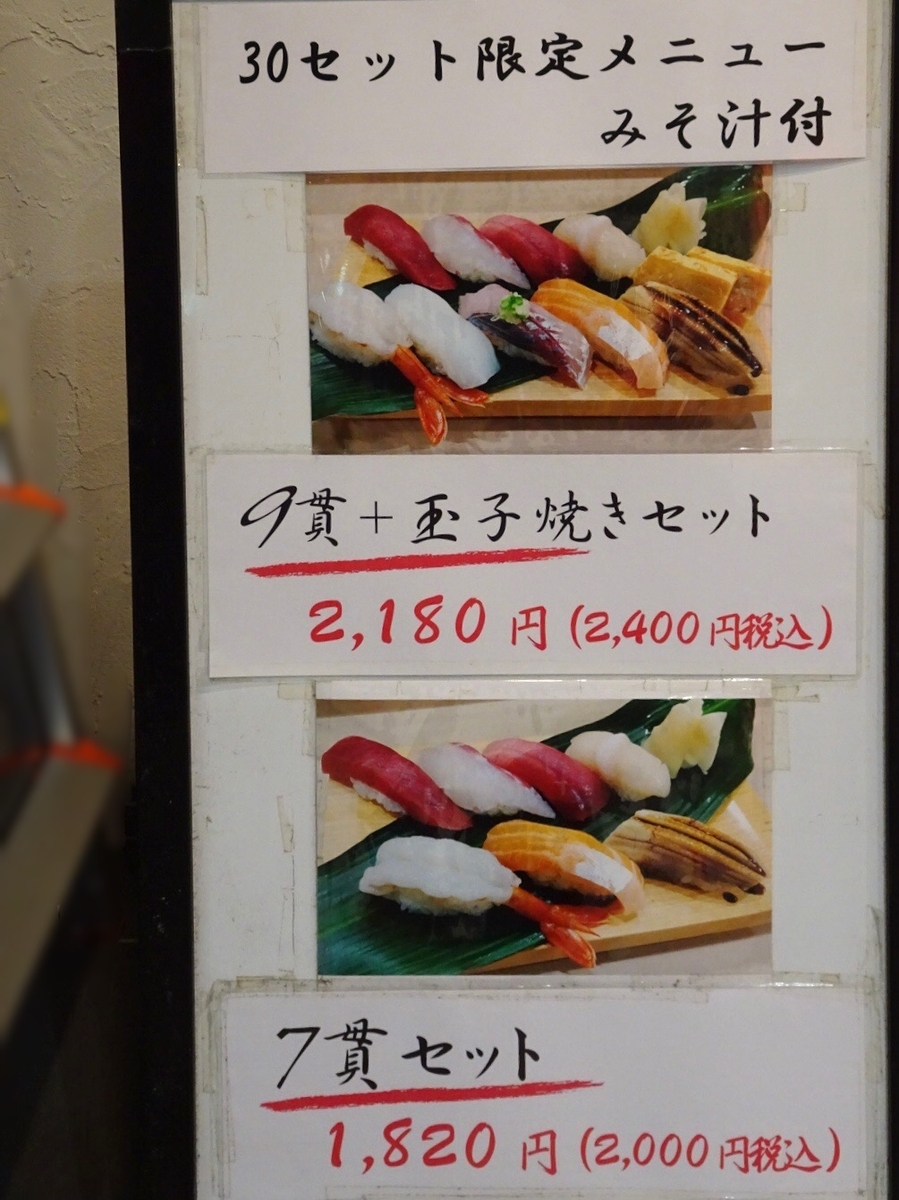 30セット限定メニュー
みそ汁付
9貫+玉子焼きセット
2,180円(2,400円税込)
7貫セット
1,820円(2,000円税込)